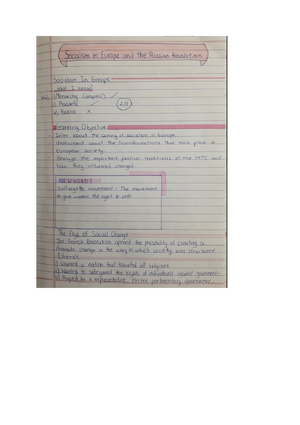 Socialism in Europe and the Russian Revolution
Socialism In Europe
What I know?
i) Monarchy (absolute) ✓
ii) Peasants ✓
iii) Russia ×
Learning Objective
Learn about the coming of socialism in Europe.
Understand about the transformations that took place in
European Society.
Analyze the important political traditions of the 19th C and
how they influenced change.
NEW WORDS
Suffragette movement : The movement
to give women the right to vote
The Age of Social Change
The French Revolution opened the possibility of creating a
dramatic change in the way in which society was structured
Liberals
i) Wanted a nation that tolerated all religions
ii) Wanted to safeguard the rights of individuals against government
iii) Argued for a representative, elected parliamentary government,